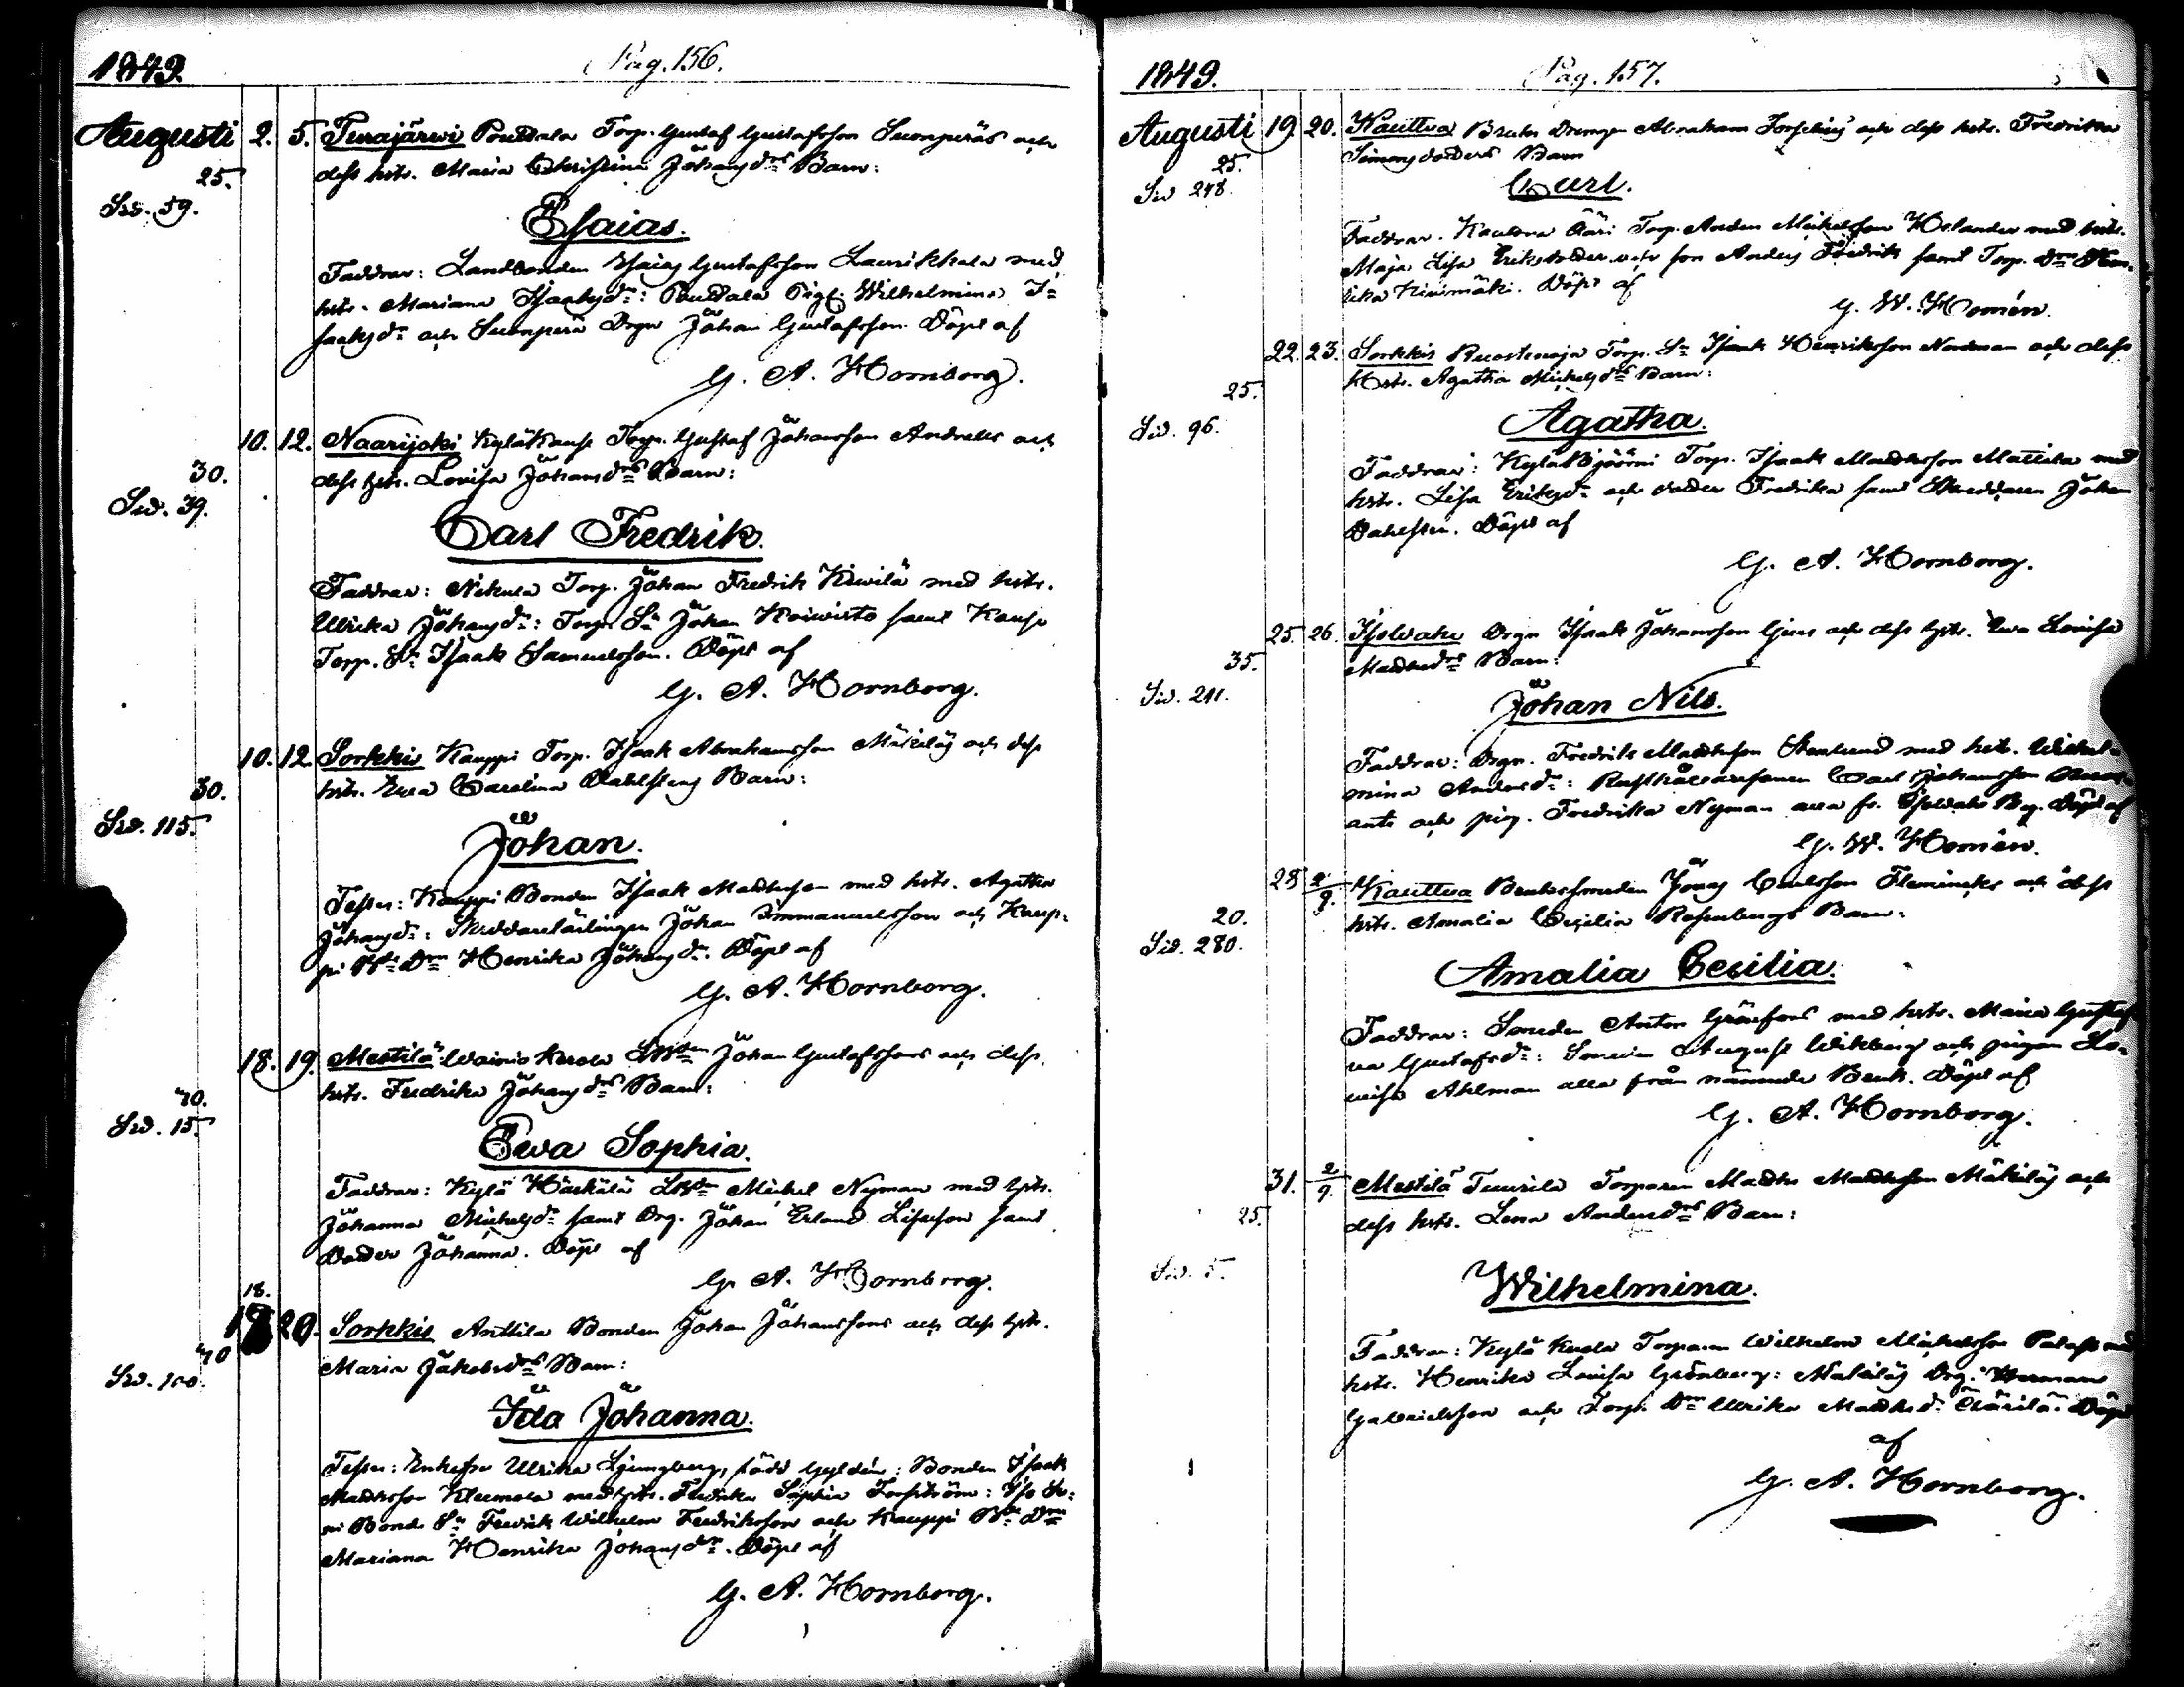 1849.
Pag. 156.
Augusti 2. 5. Turajärwi Pouttala Torp. Gustaf Gustafsson Suonperäs och
25.
dess hstr. Maria Christina Johansdrs Barn:
Sid. 59.
Esaias.
Faddrar: Landbonden Esaias Gustafsson Laurikkala med
hstr. Mariana Isaaksdr: Pouttala Pig. Wilhelmina I=
saaksdr och Suonperä Drgn Johan Gustafsson. Döpt af
G. A. Hornborg.
10. 12. Naarijoki Torp. Gustaf Johansson och
30.
dess hstr. Lovisa Johansdrs Barn:
Sid. 39.
Carl Fredrik.
Faddrar: Torp. Johan Fredrik Kiwilä med hstr.
Ulrika Johansdr: Torp. Sn Johan Koiwisto samt
Torp. Sn Isaak Samuelsson. Döpt af
G. A. Hornborg.
10. 12. Sorkkis Kauppi Torp. Isaak Abrahamsson Mäkiläs och dess
30.
hstr. Ewa Carolina Dahlstens Barn:
Sid. 115.
Johan.
Testes: Kauppi Bonden Isaak Matthsson med hstr. Agatha
Johansdr: Skräddarelärlingen Johan Immanuelsson och Kaup=
pi Bds Dm Henrika Johansdr. Döpt af
G. A. Hornborg.
18. 19. Mestilä Johan Gustafssons och dess
40.
hstr. Fredrika Johansdrs Barn:
Sid. 15.
Ewa Sophia.
Faddrar: Kylä Härkälä Michel Nyman med hstr.
Johanna Michelsdr samt Drg. Johan Erland samt
Dotter Johanna. Döpt af
G. A. Hornborg.
18.
20. Sorkkis Anttila Bonden Johan Johanssons och dess hstr.
40
Maria Jakobsdrs Barn:
Sid. 100.
Ida Johanna.
Testes: Enkefru Ulrika Ljungberg, född Gyldén: Bonden Isaak
Matthsson Kleemola med hstr. Fredrika Sophia Forsström: Iso
Bond. Sn Fredrik Wilhelm Fredriksson och Kauppi Bds Dm
Mariana Henrika Johansdr. Döpt af
G. A. Hornborg.
1849.
Pag. 157.
Augusti 19 20. Kauttua Bruks Drengen Abraham Forselius och dess hstr. Fredrika
25.
Simonsdotters Barn
Sid 248.
Carl.
Faddrar. Torp. Anders Michelsson Helander med hstr.
Maja Lisa Eriksdotter och son Anders Fredrik samt Torp. Dm
Kiwimäki. Döpt af
G. W. Homén.
22. 23. Sorkkis Ruostenoja Torp. Sn Isaak Henriksson Nordman och dess
25.
Hstr. Agatha Michelsdrs Barn:
Sid. 96.
Agatha.
Faddrar: Kylä Torp. Isaak Matthsson Mattila med
hstr. Lisa Eriksdr och dotter Fredrika samt Skreddaren Johan
Dahlsten. Döpt af
G. A. Hornborg.
25. 26. Drgn Isaak Johansson och dess hstr. Ewa Lovisa
35.
Matthsdrs Barn:
Sid. 211.
Johan Nils.
Faddrar: Drgn. Fredrik Matthsson Stenlund med hstr. Wilhel=
mina Andersdr: Carl Johansson
och pig. Fredrika Nyman alla fr. Döpt af
G. W. Homén.
28 2/9. Kauttua Bruksmeden Jonas Carlsson och dess
20.
hstr. Amalia Cecilia Rosenbergs Barn:
Sid. 280.
Amalia Cecilia.
Faddrar: Smeden Anton med hstr. Maria Gustaf
Gustafsdr: Smeden August Wikberg och pigan Lo=
wisa Ahlman alla från nämnde Bruk. Döpt af
G. A. Hornborg.
31. 2/9. Mestilä Tuurila Torparen Matths Matthsson Mäkiläs och
25.
dess hstr. Lena Andersdrs Barn:
Sid. 5.
Wilhelmina.
Faddrar: Kylä Torparen Wilhelm Michelsson med
hstr. Henrika Lovisa Grönberg: Mäkiläs Drg. Herman
Gabrielsson och Torp. Dm Ulrika Matthsdr Döpt
af
G. A. Hornborg.